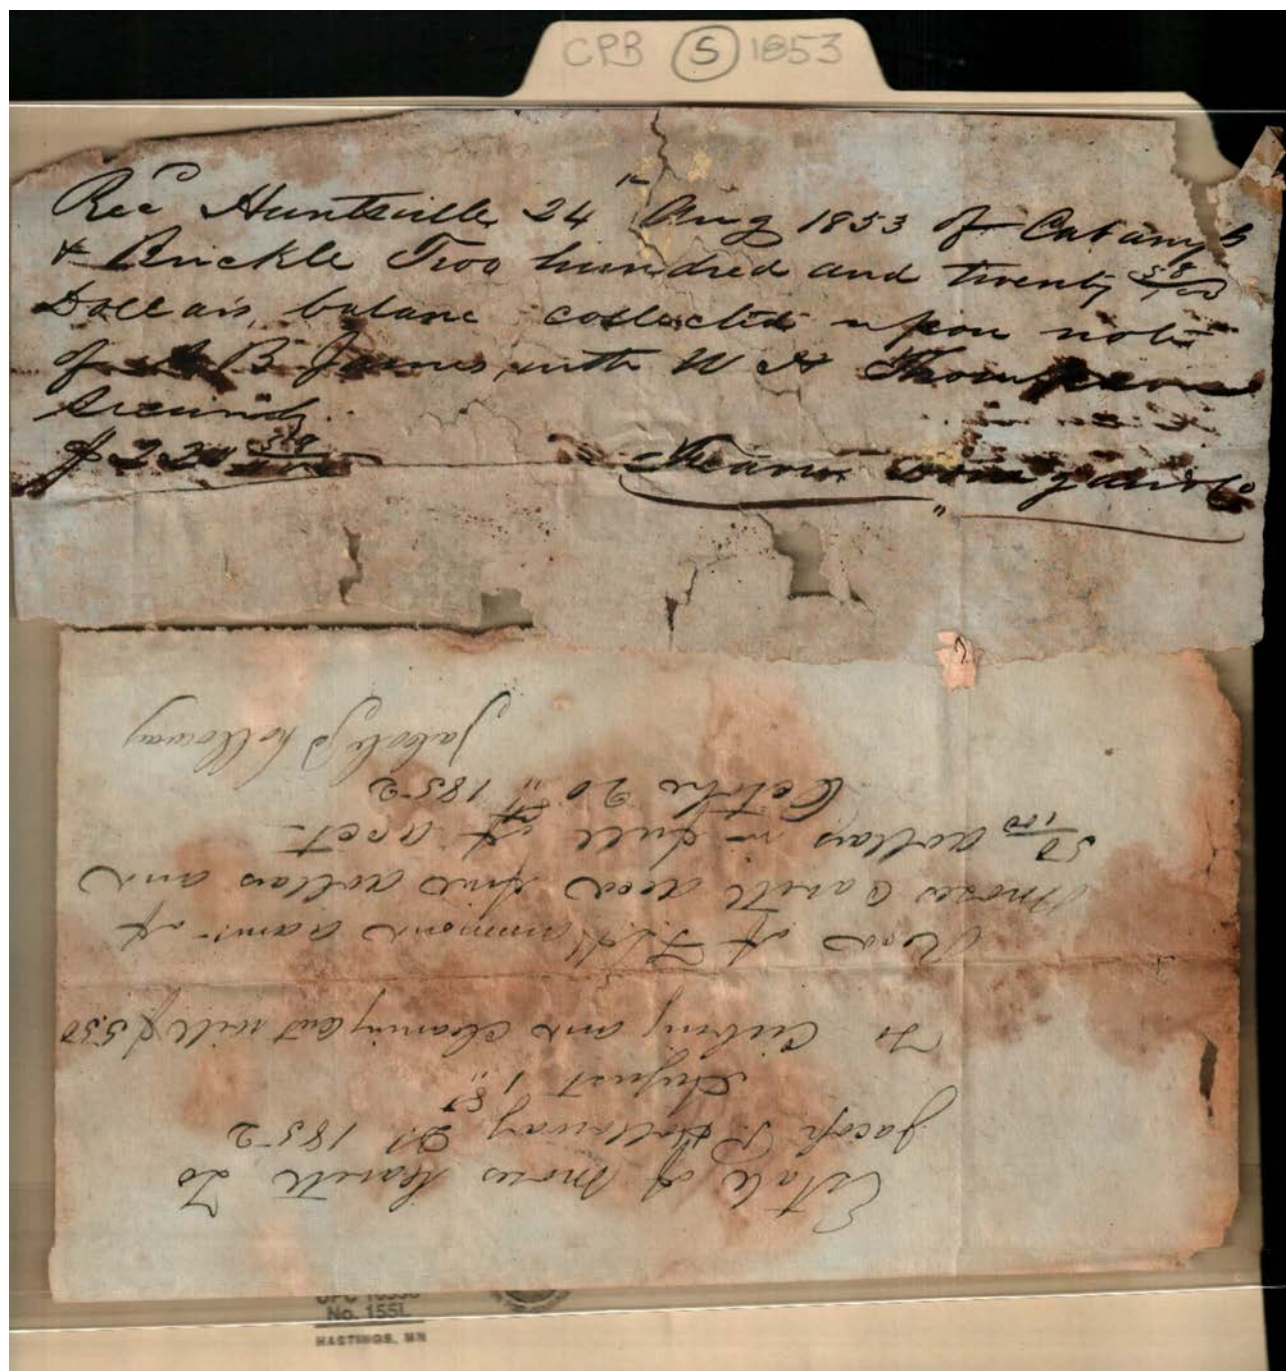 CPB (S) 1853
Recd Huntsville 24th Aug 1853 of Cabaniss
& Brickle Two hundred and twenty 58/100
Dollars, balance collected upon note
of B James with W H Thompson
Security
$220 58/100
Fearn Donegan & Co
Estate of Moses Leavitt To
Jacob P. Holloway Dr 1852
August 1st
To Curbing and cleaning out well $ 5.50
Recd of F. L. Hammond admr of
Moses Leavitt decd five dollars and
50/100 dollars in full of acct
October 20th 1852
Jacob P holloway
No. 155L
HASTINGS, MN